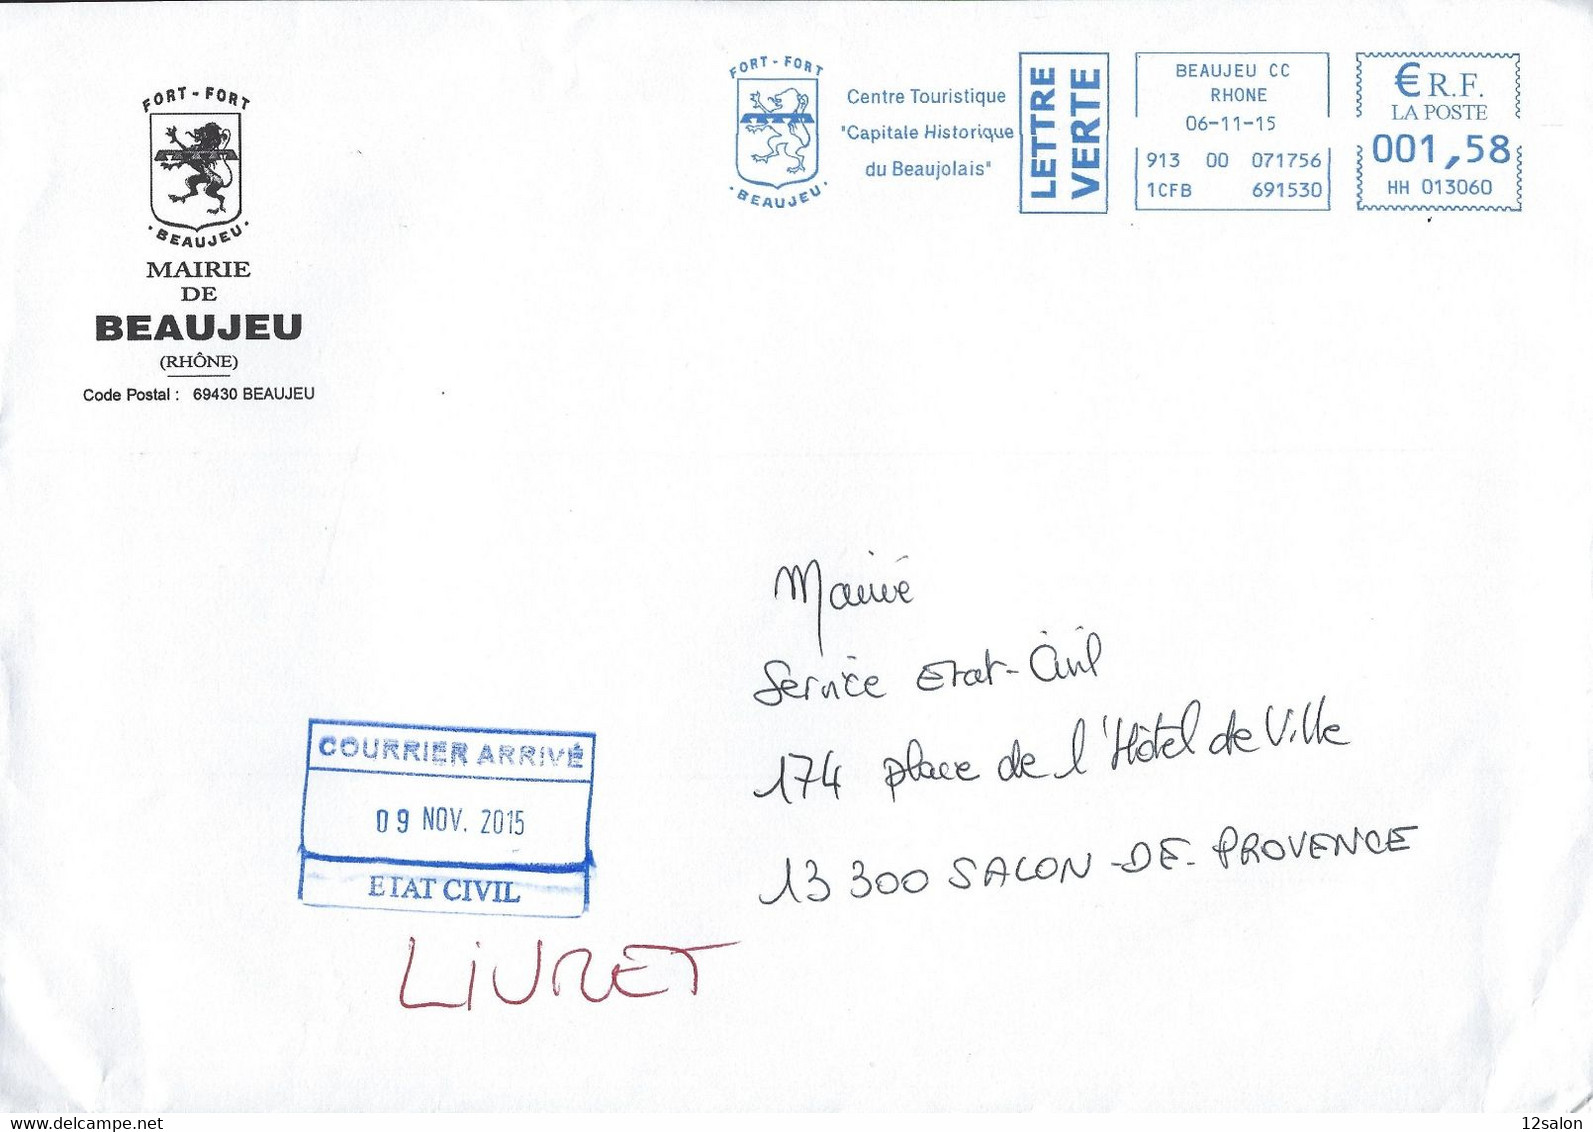 FORT - FORT
BEAUJEU
MAIRIE
DE
BEAUJEU
(RHÔNE)
Code Postal : 69430 BEAUJEU
FORT - FORT
BEAUJEU
Centre Touristique
"Capitale Historique
du Beaujolais"
LETTRE
VERTE
BEAUJEU CC
RHONE
06-11-15
913 00 071756
1CFB 691530
€ R.F.
LA POSTE
001,58
HH 013060
Mairie
Service Etat-Civil
174 place de l'Hôtel de Ville
13300 SALON-DE-PROVENCE
COURRIER ARRIVÉ
09 NOV. 2015
ETAT CIVIL
LIVRET
www.delcampe.net
12salon